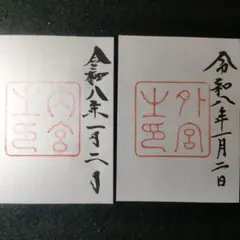 令和八年一月二日
内宮之印
令和八年一月二日
外宮之印